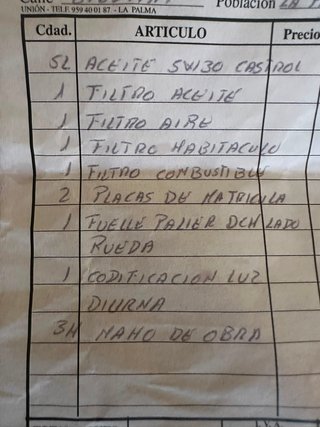 UNIÓN - TELF. 959 40 01 87 - LA PALMA
Población LA
Cdad. ARTICULO Precio
5L ACEITE 5W30 CASTROL
1 FILTRO ACEITE
1 FILTRO AIRE
1 FILTRO HABITACULO
1 FILTRO COMBUSTIBLE
2 PLACAS DE MATRICULA
1 FUELLE PALIER DCH LADO
RUEDA
1 CODIFICACION LUZ
DIURNA
3H MANO DE OBRA